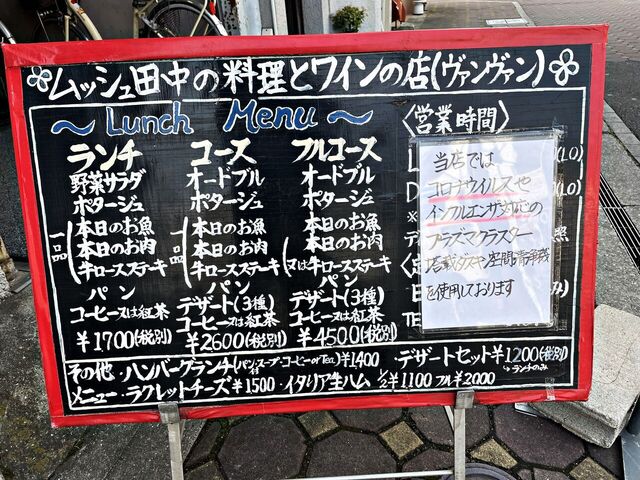 ムッシュ田中の料理とワインの店(ヴァンヴァン)
~ Lunch Menu ~
ランチ
野菜サラダ
ポタージュ
一品
本日のお魚
本日のお肉
牛ロースステーキ
パン
コーヒー又は紅茶
¥1700(税別)
コース
オードブル
ポタージュ
一品
本日のお魚
本日のお肉
牛ロースステーキ
パン
デザート(3種)
コーヒー又は紅茶
¥2600(税別)
フルコース
オードブル
ポタージュ
本日のお魚
本日のお肉
又は牛ロースステーキ
パン
デザート(3種)
コーヒー又は紅茶
¥4500(税別)
〈営業時間〉
当店では
コロナウイルスや
インフルエンザ対応の
プラズマクラスター
空間清浄機
を使用しております
その他・ハンバーグランチ(パン・スープ・コーヒー or Tea)¥1400
・デザートセット¥1200(税別)
ランチのみ
メニュー・ラクレットチーズ¥1500・イタリア生ハム 1/2¥1100 フル¥2000